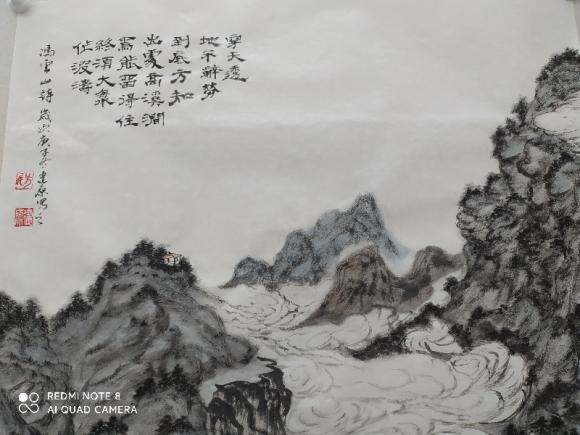 穿天透
地不辭勞
到底方知
出處高溪澗
焉能留得住
終須大
作波濤
馮雲山詩歲次庚子冬建原寫之
REDMI NOTE 8
AI QUAD CAMERA